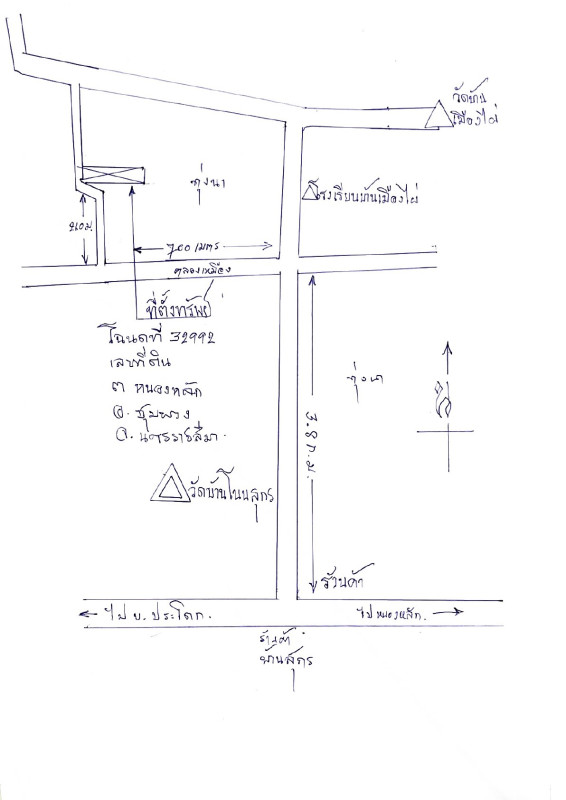 วัดบ้าน
เมืองไผ่
ทุ่งนา
โรงเรียนบ้านเมืองไผ่
700 เมตร
คลองเหมือง
ที่ตั้งทรัพย์
โฉนดที่ 32992
เลขที่ดิน
ต หนองหลัก
อ. ชุมพวง
จ. นครราชสีมา
ทุ่งนา
3.8 ก.ม.
วัดบ้านโนนสุกร
ร้านค้า
ไป บ. ประโดก.
ไปหนองหลัก.
ร้านค้า
บ้านสุกร